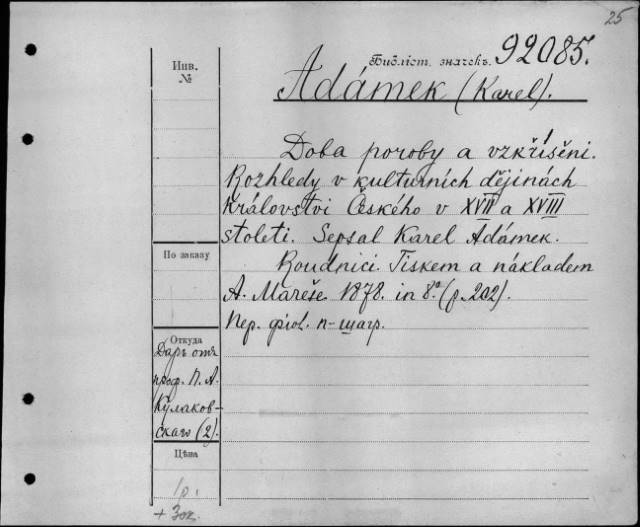 25
Библіот. значекъ. 92085.
Инв.
№
Adámek (Karel).
Doba poroby a vzkříšéni.
Rozhledy v kulturních dějinách
Království Českého v XVII a XVIII
století. Sepsal Karel Adámek.
По заказу
Roudnici. Tiskem a nákladem
A. Mareše. 1878. in 8° (p. 202).
Пер. фіол. п-шагр.
Откуда
Даръ отъ
проф. П. А.
Кулаков-
скаго (2).
Цѣна
1 р.
+ 30к.